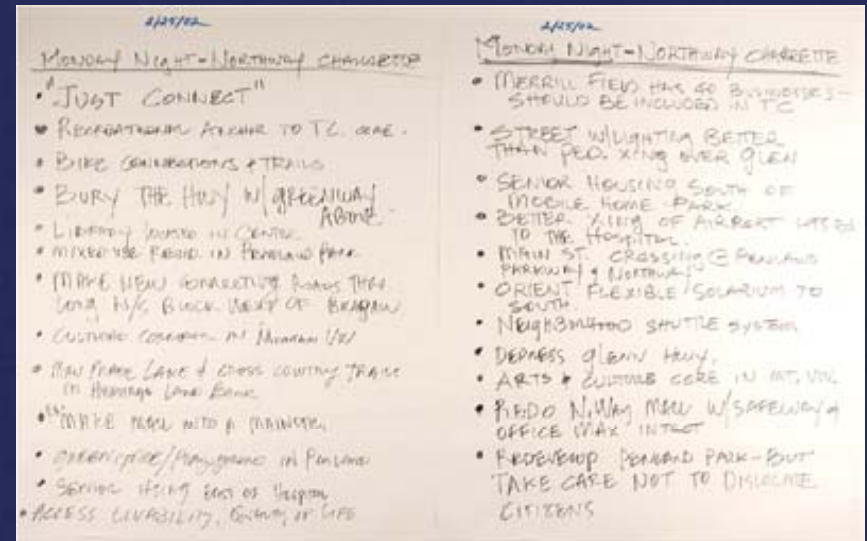 2/25/02
MONDAY NIGHT - NORTHWAY CHARRETTE
• "JUST CONNECT"
• RECREATIONAL ANCHOR TO T.C. CORE.
• BIKE CONNECTIONS & TRAILS
• BURY THE HWY W/ GREENWAY
ABOVE
• LIBRARY LOCATED IN CENTER
• MIXED USE REDEV. IN PENLAND PARK
• MAKE NEW CONNECTING ROADS THRU
LONG N/S BLOCK WEST OF BRAGAW
• CULTURE CORRIDOR IN MOUNTAIN VIEW
LANE & CROSS COUNTRY TRAILS
IN LAND BANK
• "MAKE MALL INTO A MAINSTR.
• OPEN SPACE/PLAYGROUND IN PENLAND
• SENIOR HSING EAST OF HOSPITAL
• ACCESS LIVABILITY, QUALITY OF LIFE
2/25/02
MONDAY NIGHT - NORTHWAY CHARRETTE
• MERRILL FIELD HAS 60 BUSINESSES -
SHOULD BE INCLUDED IN TC
• STREET W/LIGHTING BETTER
THAN PED. XING OVER GLEN
• SENIOR HOUSING SOUTH OF
MOBILE HOME PARK.
• BETTER XING OF AIRPORT
TO THE HOSPITAL.
• MAIN ST. CROSSING @ PENLAND
PARKWAY & NORTHWAY
• ORIENT FLEXIBLE SOLARIUM TO
SOUTH.
• NEIGHBORHOOD SHUTTLE SYSTEM
• DEPRESS GLENN HWY.
• ARTS & CULTURE CORE IN MT. VW.
• REDO N.WAY MALL W/SAFEWAY &
OFFICE MAX INTACT
• REDEVELOP PENLAND PARK - BUT
TAKE CARE NOT TO DISLOCATE
CITIZENS